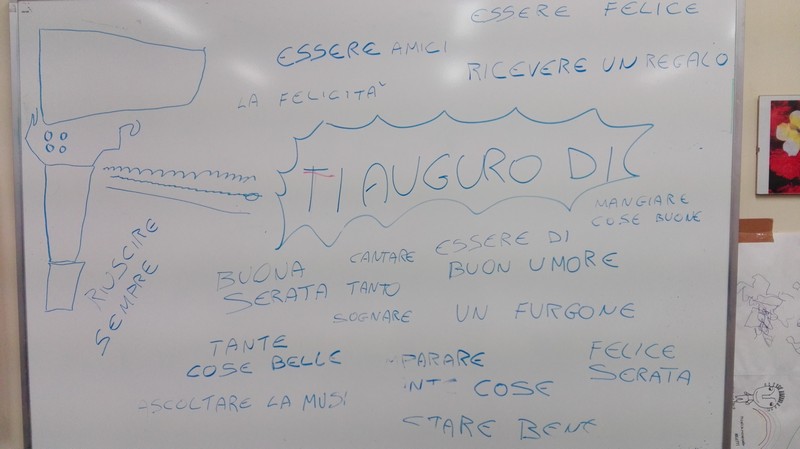 ESSERE FELICE
ESSERE AMICI
RICEVERE UN REGALO
LA FELICITA'
TI AUGURO DI
MANGIARE
COSE BUONE
RIUSCIRE
SEMPRE
BUONA
SERATA
CANTARE
TANTO
ESSERE DI
BUON UMORE
SOGNARE
UN FURGONE
TANTE
COSE BELLE
PARARE
COSE
FELICE
SERATA
ASCOLTARE LA MUSI
STARE BENE